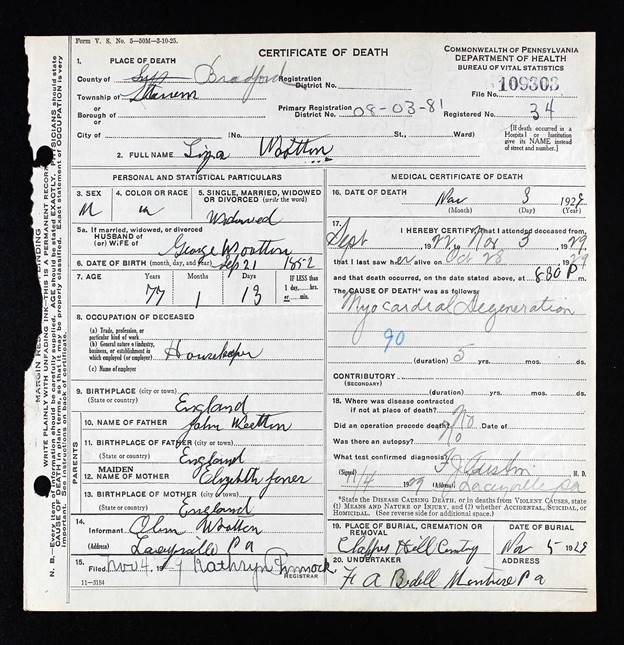 Form V. S. No. 5—50M—3-10-25.
CERTIFICATE OF DEATH
COMMONWEALTH OF PENNSYLVANIA
DEPARTMENT OF HEALTH
BUREAU OF VITAL STATISTICS
1. PLACE OF DEATH
County of Bradford
Registration District No.
File No. 109303
Township of
or
Borough of
Primary Registration District No. 08-03-81
Registered No. 34
City of (No. St., Ward)
[If death occurred in a Hospital or Institution give its NAME instead of street and number.]
2. FULL NAME Liza Wootton
PERSONAL AND STATISTICAL PARTICULARS
3. SEX
4. COLOR OR RACE
5. SINGLE, MARRIED, WIDOWED OR DIVORCED (write the word)
M w Widowed
5a. If married, widowed, or divorced
HUSBAND of
(or) WIFE of George Wootton
6. DATE OF BIRTH (month, day, and year) Sep 21 1852
7. AGE Years Months Days IF LESS than 1 day, hrs. or min.
77 1 13
8. OCCUPATION OF DECEASED
(a) Trade, profession, or particular kind of work
(b) General nature of industry, business, or establishment in which employed (or employer)
Housekeeper
(c) Name of employer
9. BIRTHPLACE (city or town)
(State or country) England
PARENTS
10. NAME OF FATHER John Wootton
11. BIRTHPLACE OF FATHER (city or town)
(State or country) England
12. MAIDEN NAME OF MOTHER Elizabeth Jones
13. BIRTHPLACE OF MOTHER (city or town)
(State or country) England
14. Informant Wootton
(Address) Laceyville Pa
15. Filed Nov 4, 19 Kathryn
REGISTRAR
11—3184
MEDICAL CERTIFICATE OF DEATH
16. DATE OF DEATH Nov 3 1929
(Month) (Day) (Year)
17. I HEREBY CERTIFY, That I attended deceased from
Sept 1929, Nov 3 1929
that I last saw her alive on Oct 28 1929
and that death occurred, on the date stated above, at 8:30 P m.
The CAUSE OF DEATH* was as follows:
Myocardial Degeneration
90
(duration) 5 yrs. mos. ds.
CONTRIBUTORY
(SECONDARY)
(duration) yrs. mos. ds.
18. Where was disease contracted
if not at place of death?
Did an operation precede death? No Date of
Was there an autopsy? No
What test confirmed diagnosis?
(Signed) M. D.
11/4 29 (Address) Laceyville Pa
*State the DISEASE CAUSING DEATH, or in deaths from VIOLENT CAUSES, state (1) MEANS AND NATURE OF INJURY, and (2) whether ACCIDENTAL, SUICIDAL, or HOMICIDAL. (See reverse side for additional space.)
19. PLACE OF BURIAL, CREMATION OR REMOVAL
DATE OF BURIAL
Hill Nov 5 1929
20. UNDERTAKER ADDRESS
F A Bedell Montrose Pa
MARGIN RESERVED FOR BINDING
WRITE PLAINLY WITH UNFADING INK—THIS IS A PERMANENT RECORD
N. B.—Every item of information should be carefully supplied. AGE should be stated EXACTLY. PHYSICIANS should state CAUSE OF DEATH in plain terms, so that it may be properly classified. Exact statement of OCCUPATION is very important. See instructions on back of certificate.